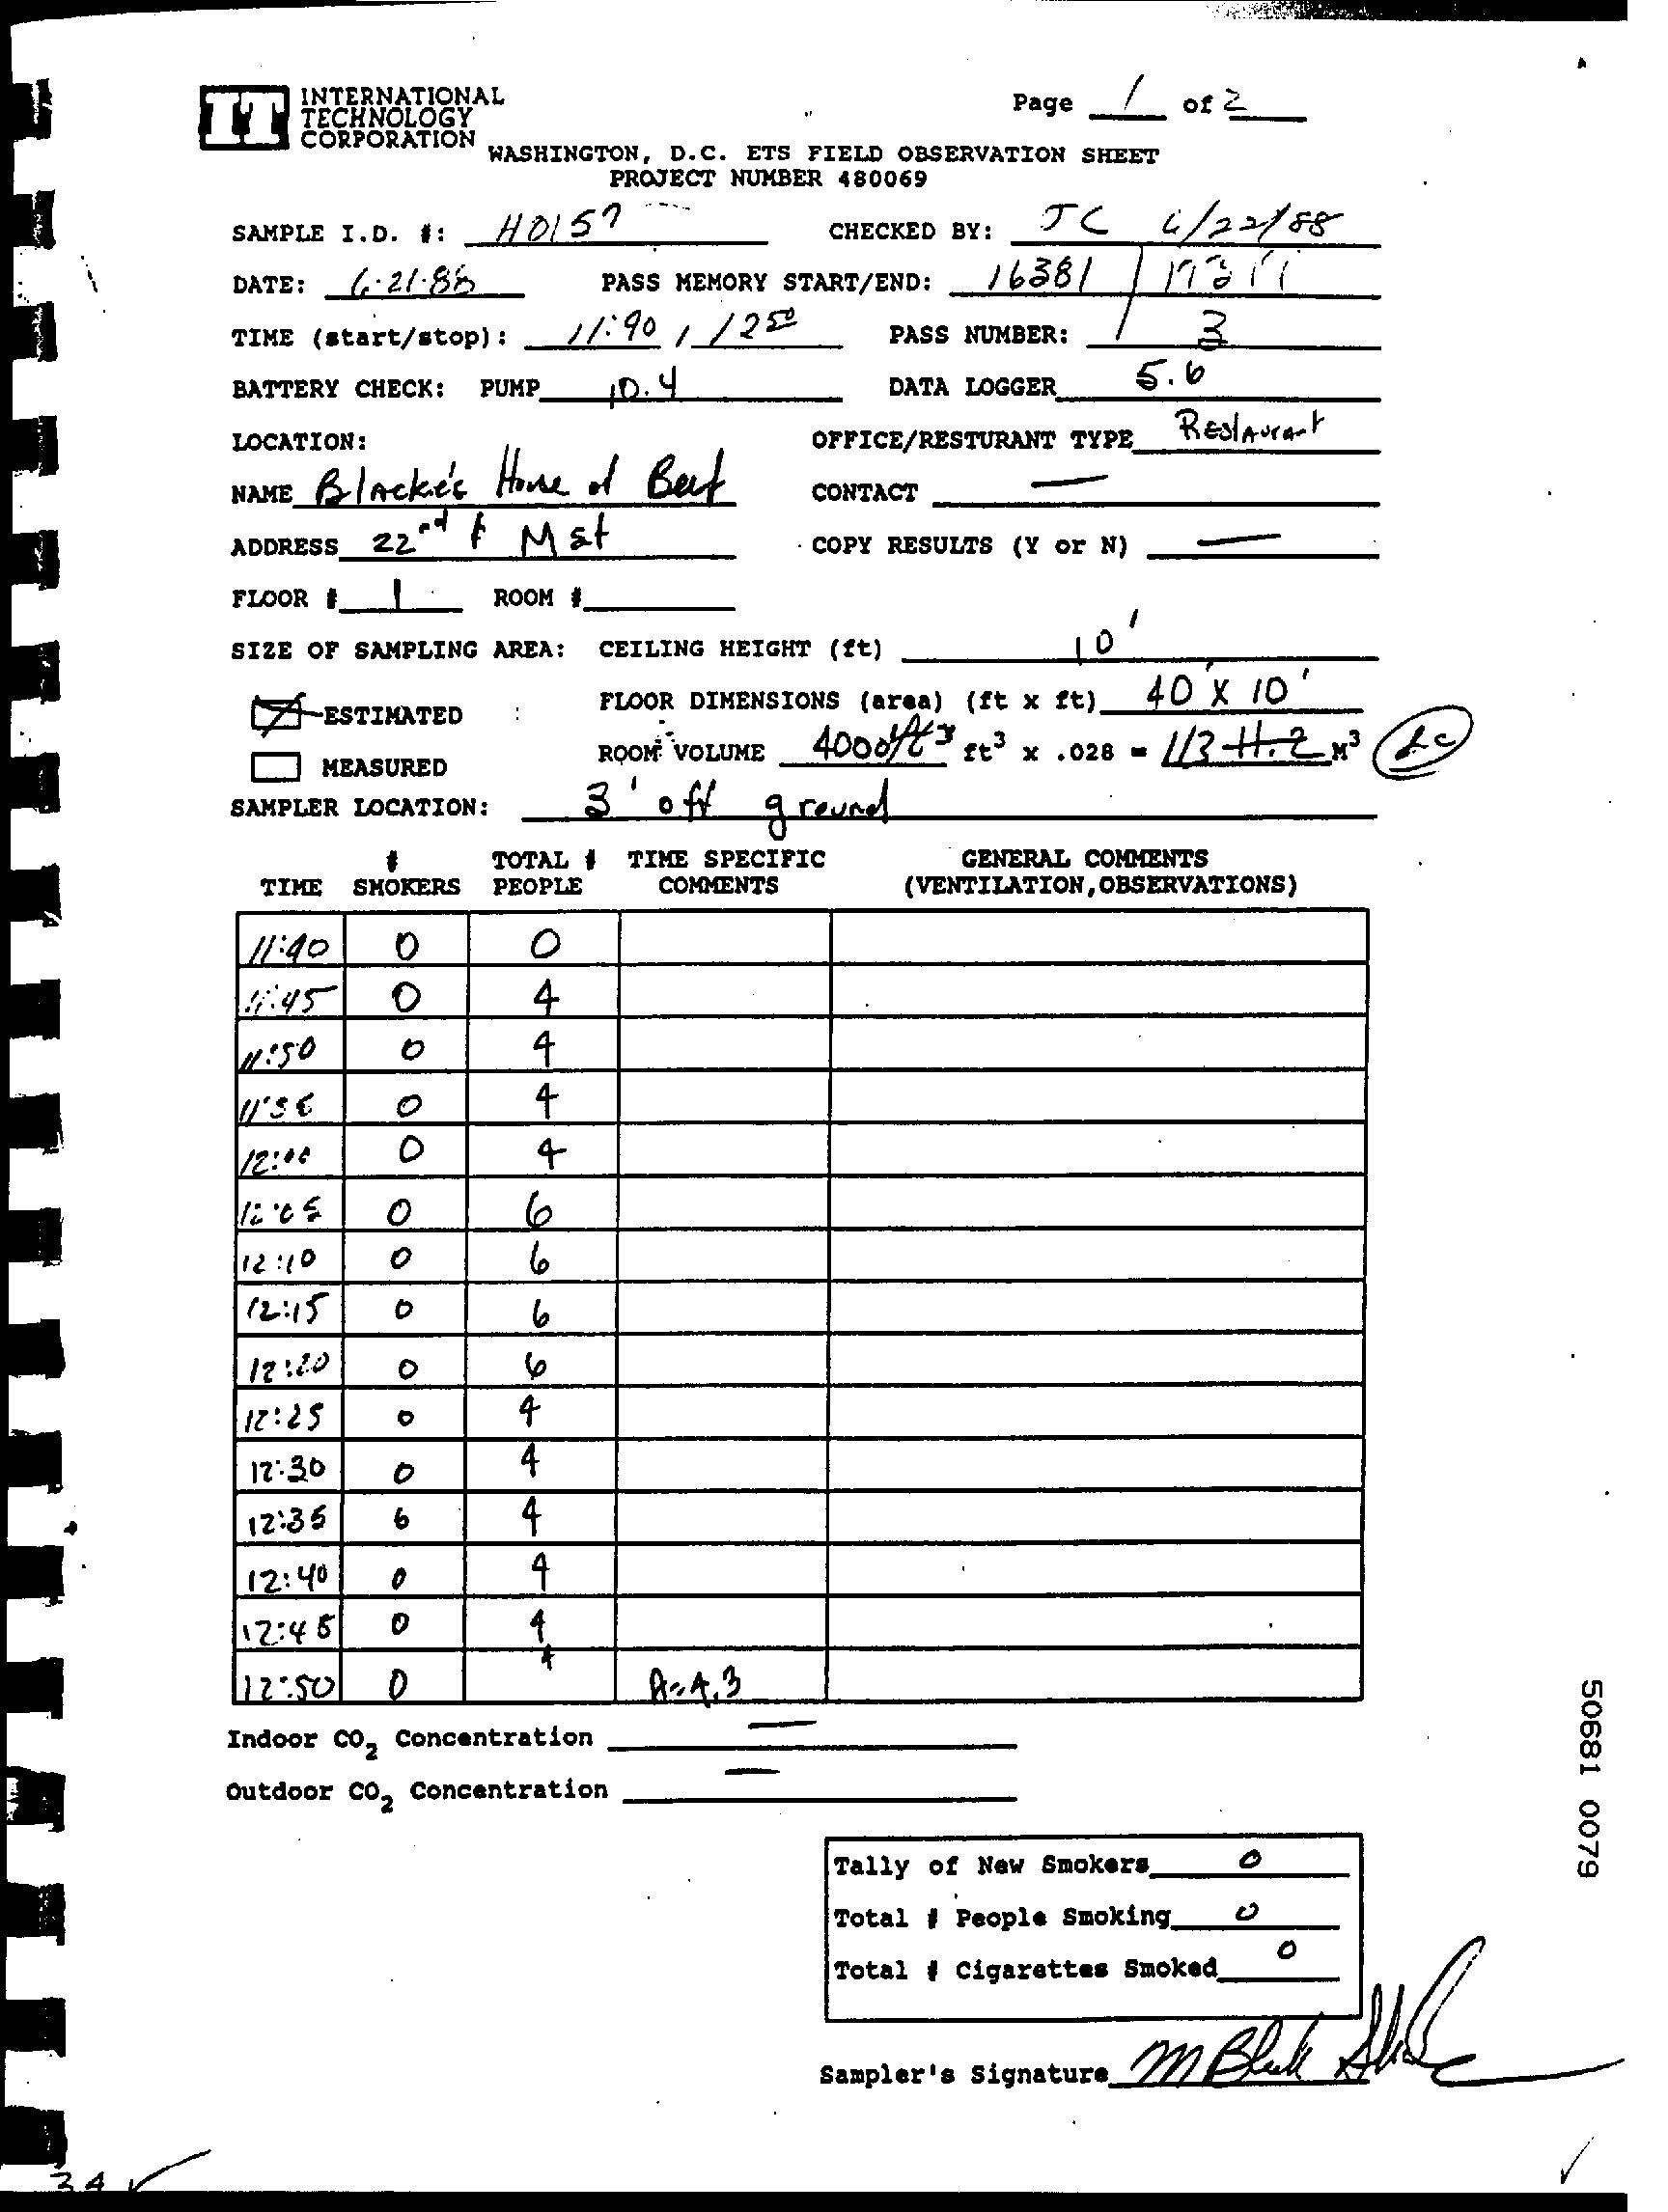 IT INTERNATIONAL
TECHNOLOGY
CORPORATION
Page 1 of 2
WASHINGTON, D.C. ETS FIELD OBSERVATION SHEET
PROJECT NUMBER 480069
SAMPLE I.D. #: H0157 CHECKED BY: JC 6/22/88
DATE: 6-21-88 PASS MEMORY START/END: 16381 /
TIME (start/stop): 11:40 / 1250 PASS NUMBER: 3
BATTERY CHECK: PUMP 10.4 DATA LOGGER 5.6
LOCATION: OFFICE/RESTURANT TYPE Restaurant
NAME Blackie's House of Beef CONTACT —
ADDRESS 22nd & M st COPY RESULTS (Y or N) —
FLOOR # 1 ROOM #
SIZE OF SAMPLING AREA: CEILING HEIGHT (ft) 10'
ESTIMATED FLOOR DIMENSIONS (area) (ft x ft) 40' x 10'
ROOM VOLUME 4000 ft3 ft3 x .028 = 113 11.2 M3
MEASURED
SAMPLER LOCATION: 3' off ground
# TOTAL # TIME SPECIFIC GENERAL COMMENTS
TIME SMOKERS PEOPLE COMMENTS (VENTILATION,OBSERVATIONS)
11:40 0 0
11:45 0 4
11:50 0 4
11:55 0 4
12:00 0 4
12:05 0 6
12:10 0 6
12:15 0 6
12:20 0 6
12:25 0 4
12:30 0 4
12:35 0 4
12:40 0 4
12:45 0 4
12:50 0 4 A=4.3
Indoor CO2 Concentration —
Outdoor CO2 Concentration —
Tally of New Smokers 0
Total # People Smoking 0
Total # Cigarettes Smoked 0
Sampler's Signature
50681 0079
34